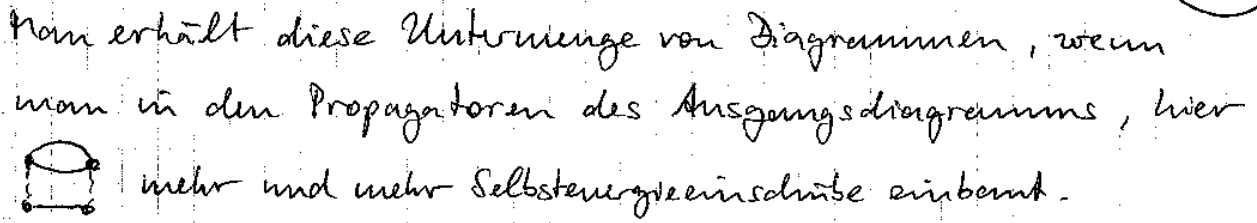 Man erhält diese Untermenge von Diagrammen, wenn
man in den Propagatoren des Ausgangsdiagramms, hier
mehr und mehr Selbstenergieeinschübe einbaut.